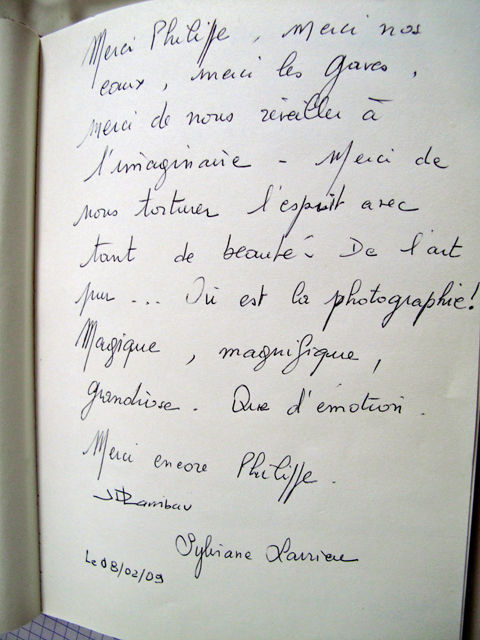 Merci Philippe, merci nos
eaux, merci les Gaves,
merci de nous réveiller à
l'imaginaire - Merci de
nous torturer l'esprit avec
tant de beauté. De l'art
pur ... Où est la photographie!
Magique, magnifique,
grandiose. Que d'émotion.
Merci encore Philippe.
Sylviane Larrieu
Le 08/02/09